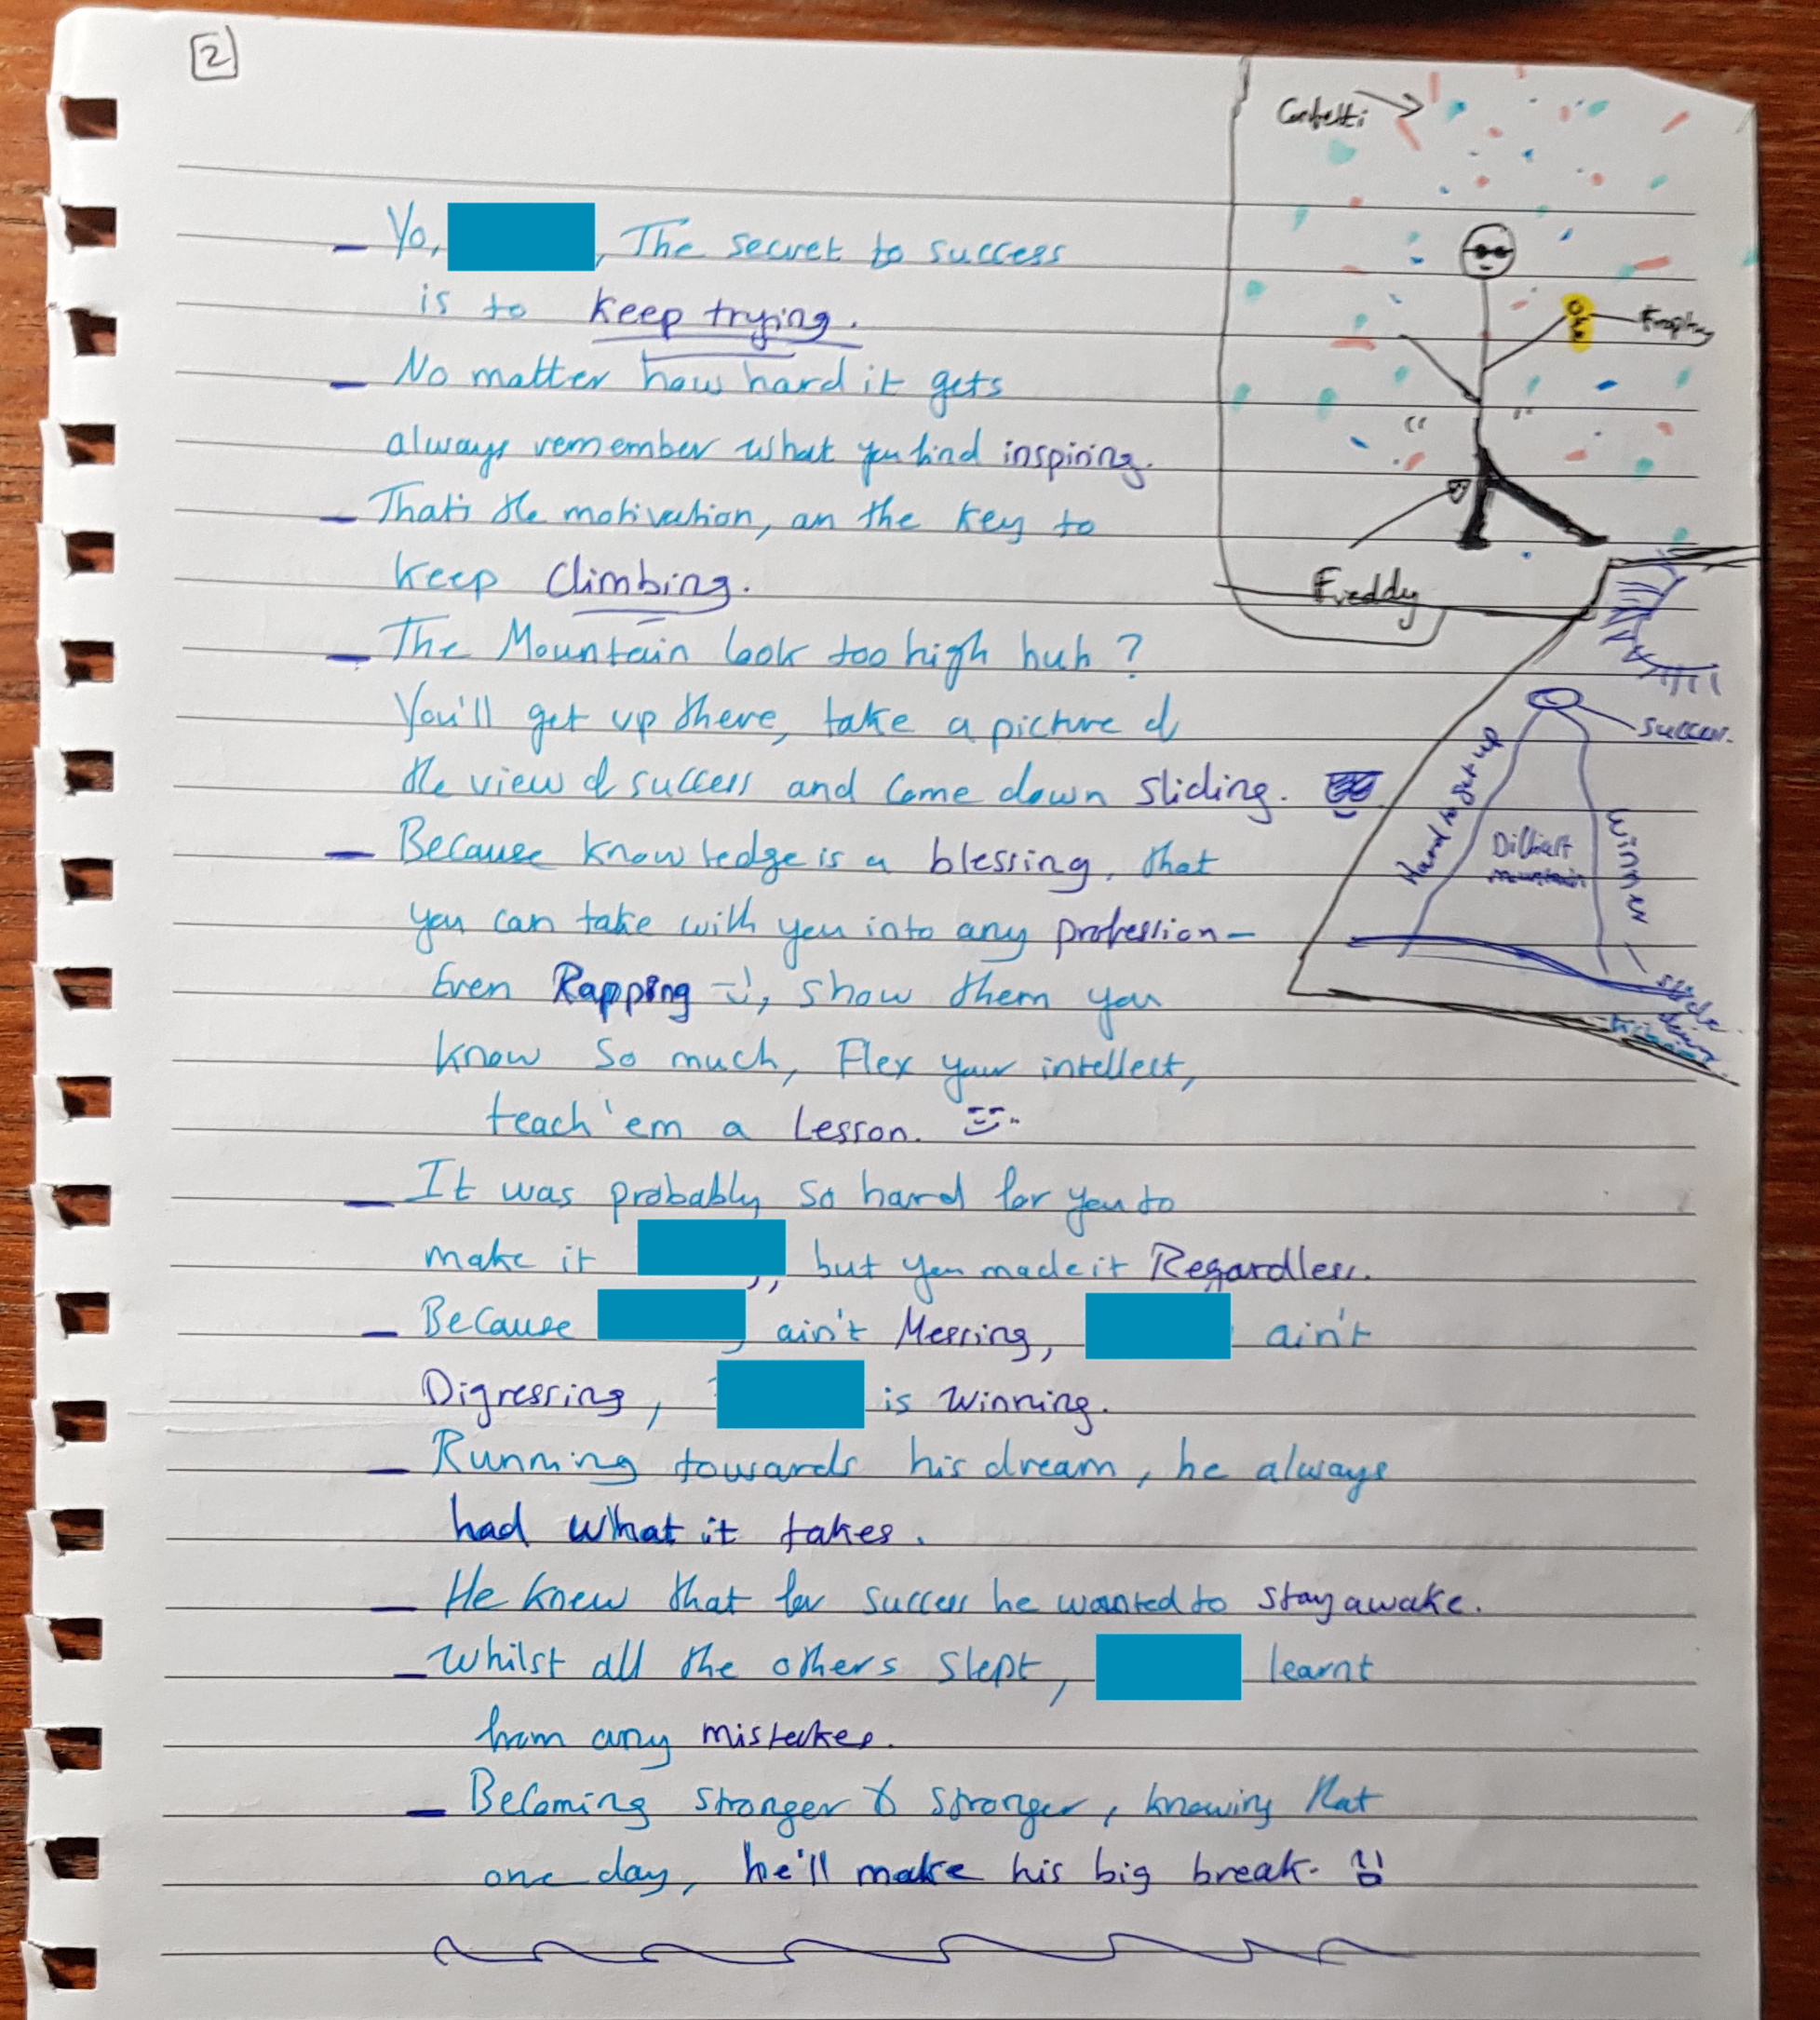 2
Confetti
Yo, , The secret to success
is to keep trying.
No matter how hard it gets
always remember what you find inspiring.
That's the motivation, an the key to
keep Climbing.
The Mountain look too high huh?
You'll get up there, take a picture of
the view of success and come down sliding.
Because knowledge is a blessing, that
you can take with you into any profession-
Even Rapping, show them you
know so much, Flex your intellect,
teach 'em a Lesson.
It was probably so hard for you to
make it , but you made it Regardless.
Because ain't Messing, ain't
Digressing, is winning.
Running towards his dream, he always
had what it takes.
He knew that for success he wanted to stay awake.
Whilst all the others slept, learnt
from any mistakes.
Becoming stronger & stronger, knowing that
one day, he'll make his big break.
Freddy
Success.
Hard to get up
Difficult
mountain
Winner